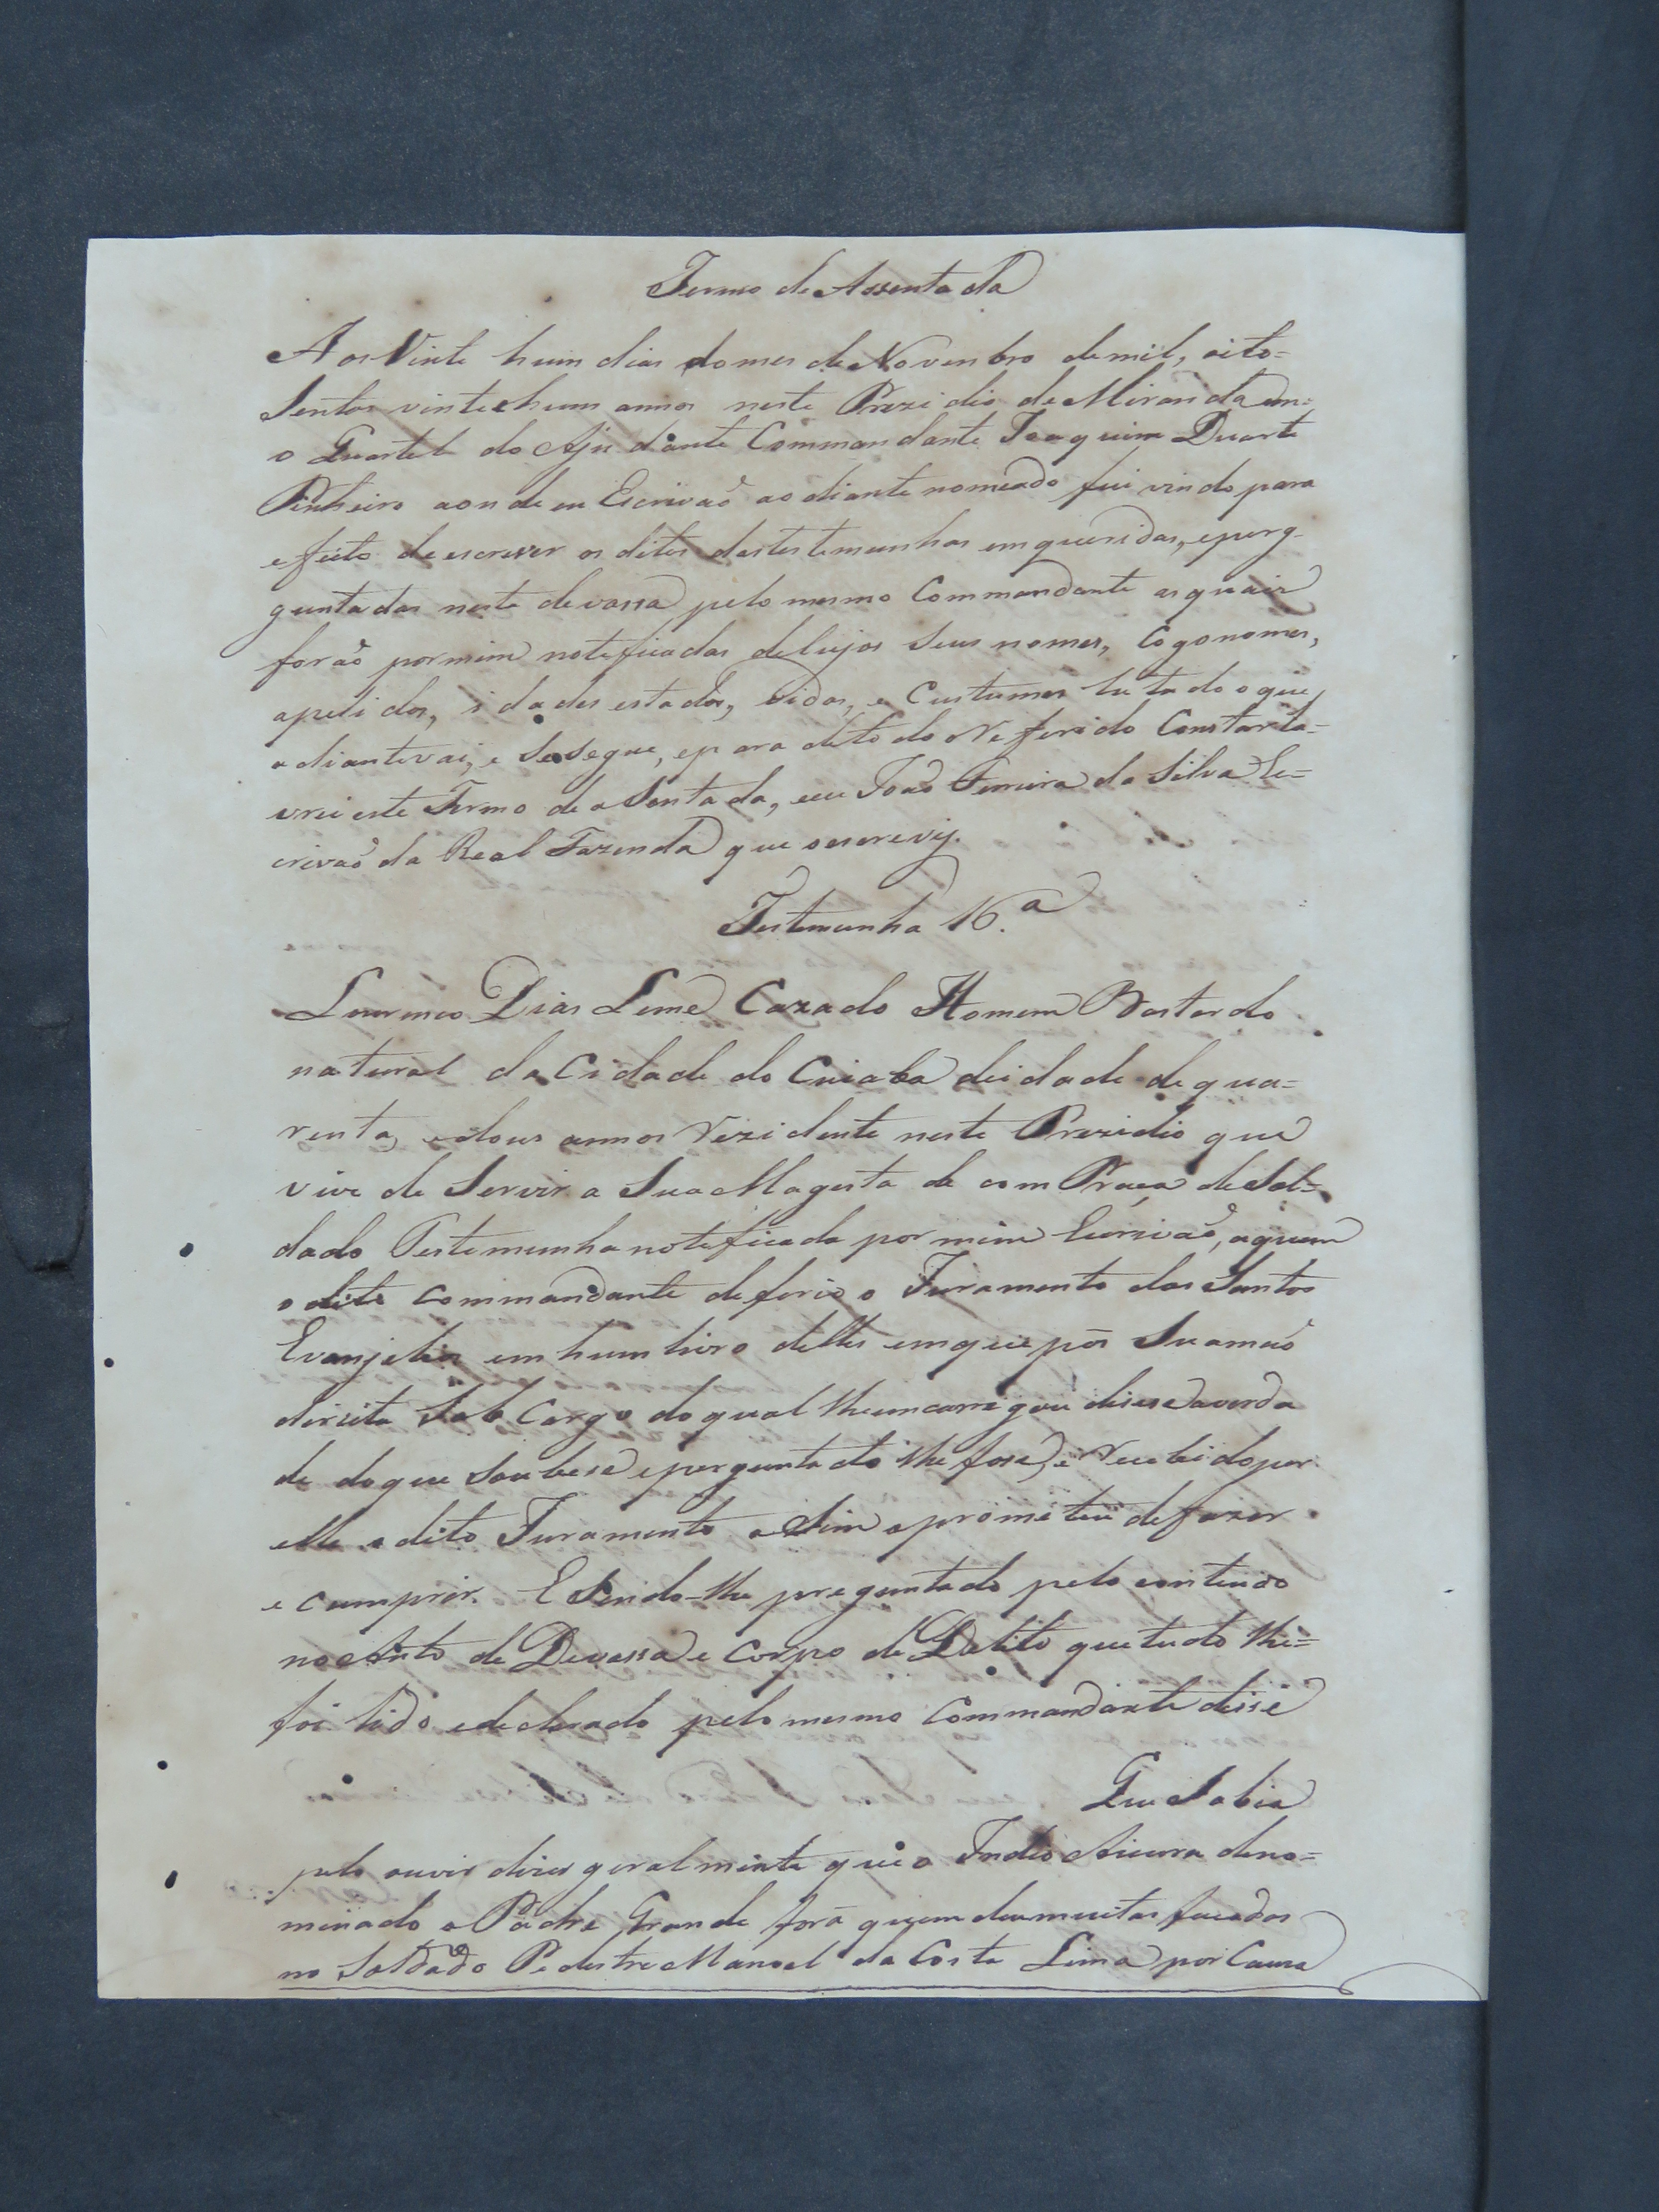 Termo de Assentada
Aos Vinte hum dias do mes de Novembro de mil, oito=
Sentos vintechum annos neste Prezidio de Miranda em=
o Quartel do Ajudante Commandante Joaquim Duarte
Pinheiro aonde eu Escrivaõ ao diante nomeado fui vindo para
efeito de escrever os ditos das testemunhas emqueridas, eperg-
guntadas nesta devassa pelo mesmo Commandante asquais
foraõ por mim noteficadas de cujos Seus nomes, Cogonomes,
apelidos, idades estados, vidas, e Custumes he tudo o que
adiante vai, e Sesegue, epara dito do Referido Constar la=
vrei este Termo de aSentada, eeu Joaõ Ferreira da Silva Es=
crivaõ da Real Fazenda que oescrevy.
Testemunha 16.ª
Lourenco Dias Leme Cazado Homem Bastardo
natural da Cidade do Cuiaba deidade de qua=
renta, edous annos Rezidente neste Prezidio que
vive de Servir a Sua Magestade com Praça de Sol=
dado Testemunha noteficada por mim Escrivaõ, aquem
o dito Commandante deferio o Juramento dos Santos
Evangelios em hum livro delles emque pós Sua maõ
direita Sob Cargo do qual lhe emcarregou disese averda
de do que Soubese eperguntado lhe fose, e Recebido por
elle o dito Juramento aSim o prometeu de fazer
e cumprir. E Sendo-lhe preguntado pelo contiudo
no Auto de Devassa e Corpo de Delito que tudo lhe=
foi lido edeclarado pelo mesmo Commandante disse
Que Sabia
pelo ouvir dizer geralmente que o Indio Aicurú deno=
minado o Padre Grande fora quem deu muitas facadas
no Soldado Pedestre Manoel da Costa Lima por Causa